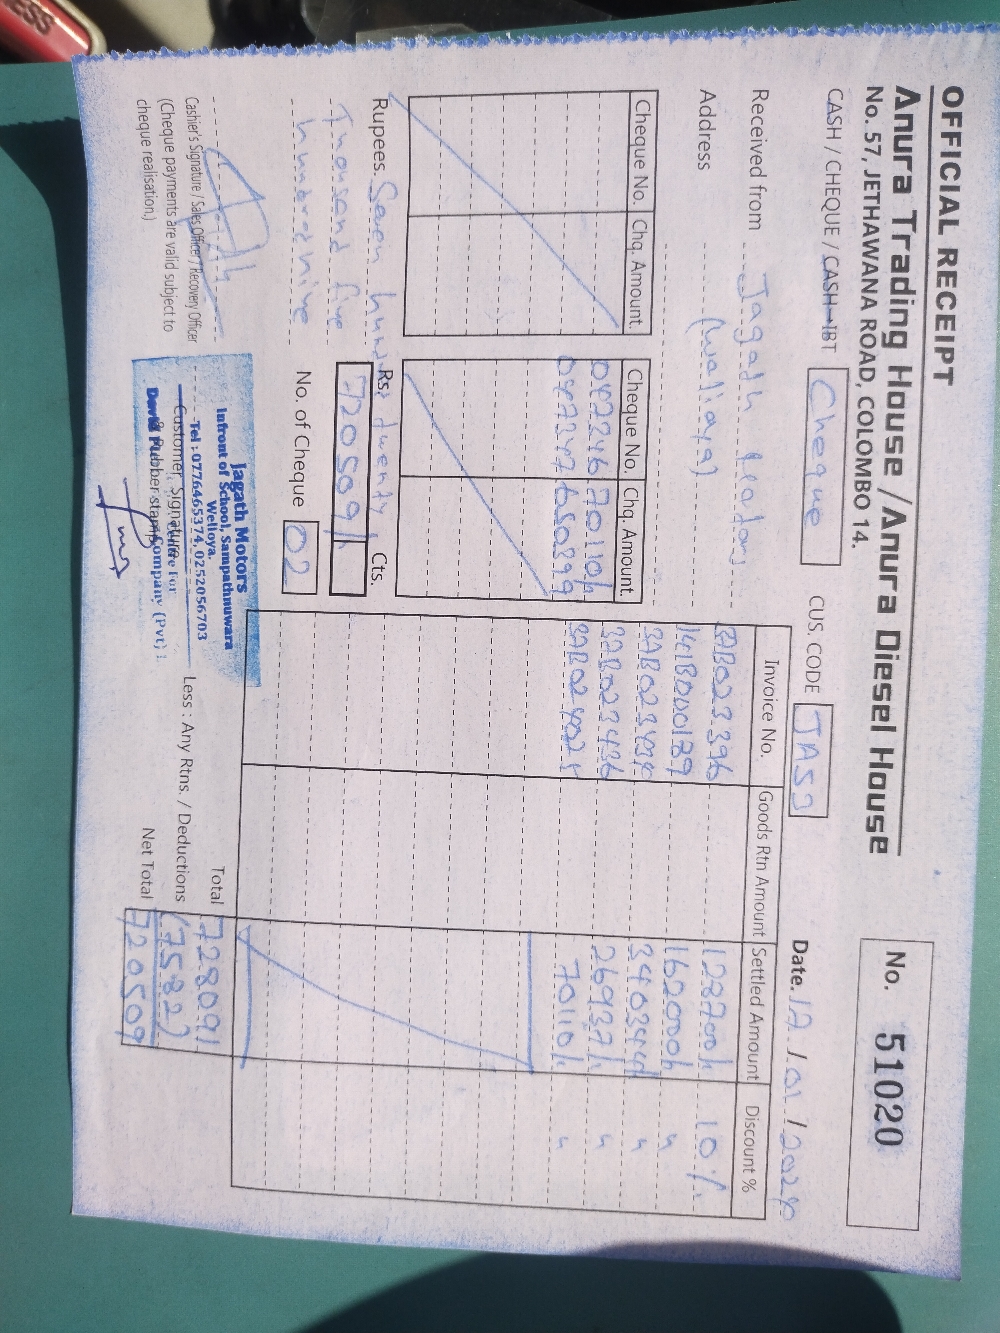 OFFICIAL RECEIPT
Anura Trading House / Anura Diesel House
No. 57, JETHAWANA ROAD, COLOMBO 14.
No. 51020
CASH / CHEQUE / CASH-IBT Cheque CUS. CODE Date. 17 / 01 / 2024
Received from Jagath
Address
Cheque No. Chq. Amount. Cheque No. Chq. Amount.
042246 70110/-
042247 650399
Invoice No. Goods Rtn Amount Settled Amount Discount %
3AB023396 128700/- 10%
162000/- "
340344/- "
3AB023436 26937/- "
70110/- "
Rupees. Seven hundred twenty
Thousand five
hundred nine
Rs. 720509/- Cts.
No. of Cheque 02
Total 728091
Less : Any Rtns. / Deductions (7582)
Net Total 720509
Cashier's Signature / Sales Officer / Recovery Officer
(Cheque payments are valid subject to
cheque realisation.)
Customer Signature
& Rubber stamp
Jagath Motors
Infront of School, Sampathnuwara
Welioya.
Tel : 0776465374, 0252056703
Company (Pvt)